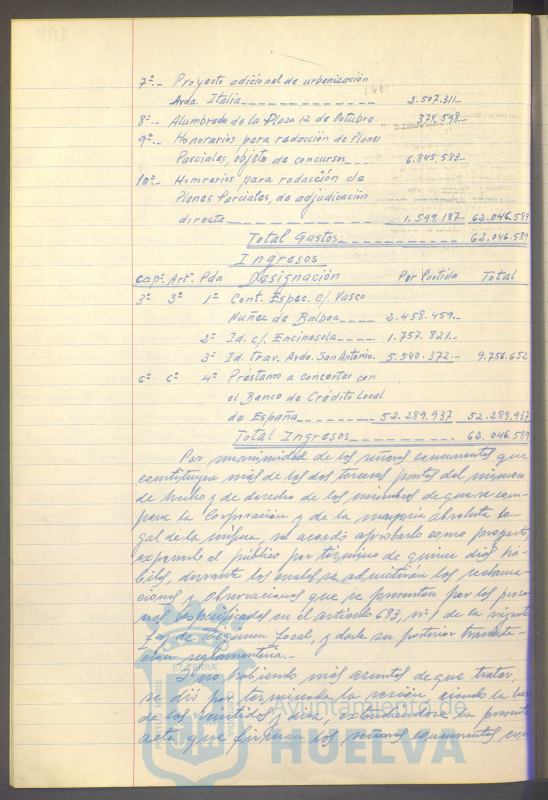 7ª.- Proyecto adicional de urbanización
Avda. Italia 2.507.311.-
8ª.- Alumbrado de la Plaza 12 de Octubre 374.598.-
9ª.- Honorarios para redacción de Planes
Parciales, objeto de concursos 6.845.583.-
10ª.- Honorarios para redacción de
Planes Parciales, de adjudicación
directa 1.599.187.- 62.046.589
Total Gastos 62.046.589
Ingresos
Capº. Artº. Pda Designación Por Partida Total
3º 3º 1ª Cont. Espec. c/. Vasco
Nuñez de Balboa 2.458.459.-
2ª Id. c/. Encinasola 1.757.821.-
3ª Id. Trav. Avda. San Antonio. 5.540.372.- 9.756.652
6º 4ª Préstamo a concertar con
el Banco de Crédito Local
de España 52.289.937 52.289.937
Total Ingresos 62.046.589
Por unanimidad de los señores concurrentes que
constituyen más de las dos terceras partes del número
de hecho y de derecho de los miembros de que se com-
pone la Corporación y de la mayoría absoluta le-
gal de la misma, se acordó aprobarlo como proyecto,
exponerlo al público por término de quince días há-
biles, durante los cuales, se admitirán las reclama-
ciones y observaciones que se presenten por las perso-
nas especificadas en el artículo 683, nº 1 de la vigente
Ley de Régimen Local, y darle su posterior tramita-
ción reglamentaria.-
Y no habiendo más asuntos de que tratar,
se dió por terminada la sesión, siendo la hora
de las veintidos y diez, extendiéndose la presente
acta que firman los señores concurrentes, con-
ET TERRÆ
PORTUS MARIS
Ayuntamiento de
HUELVA